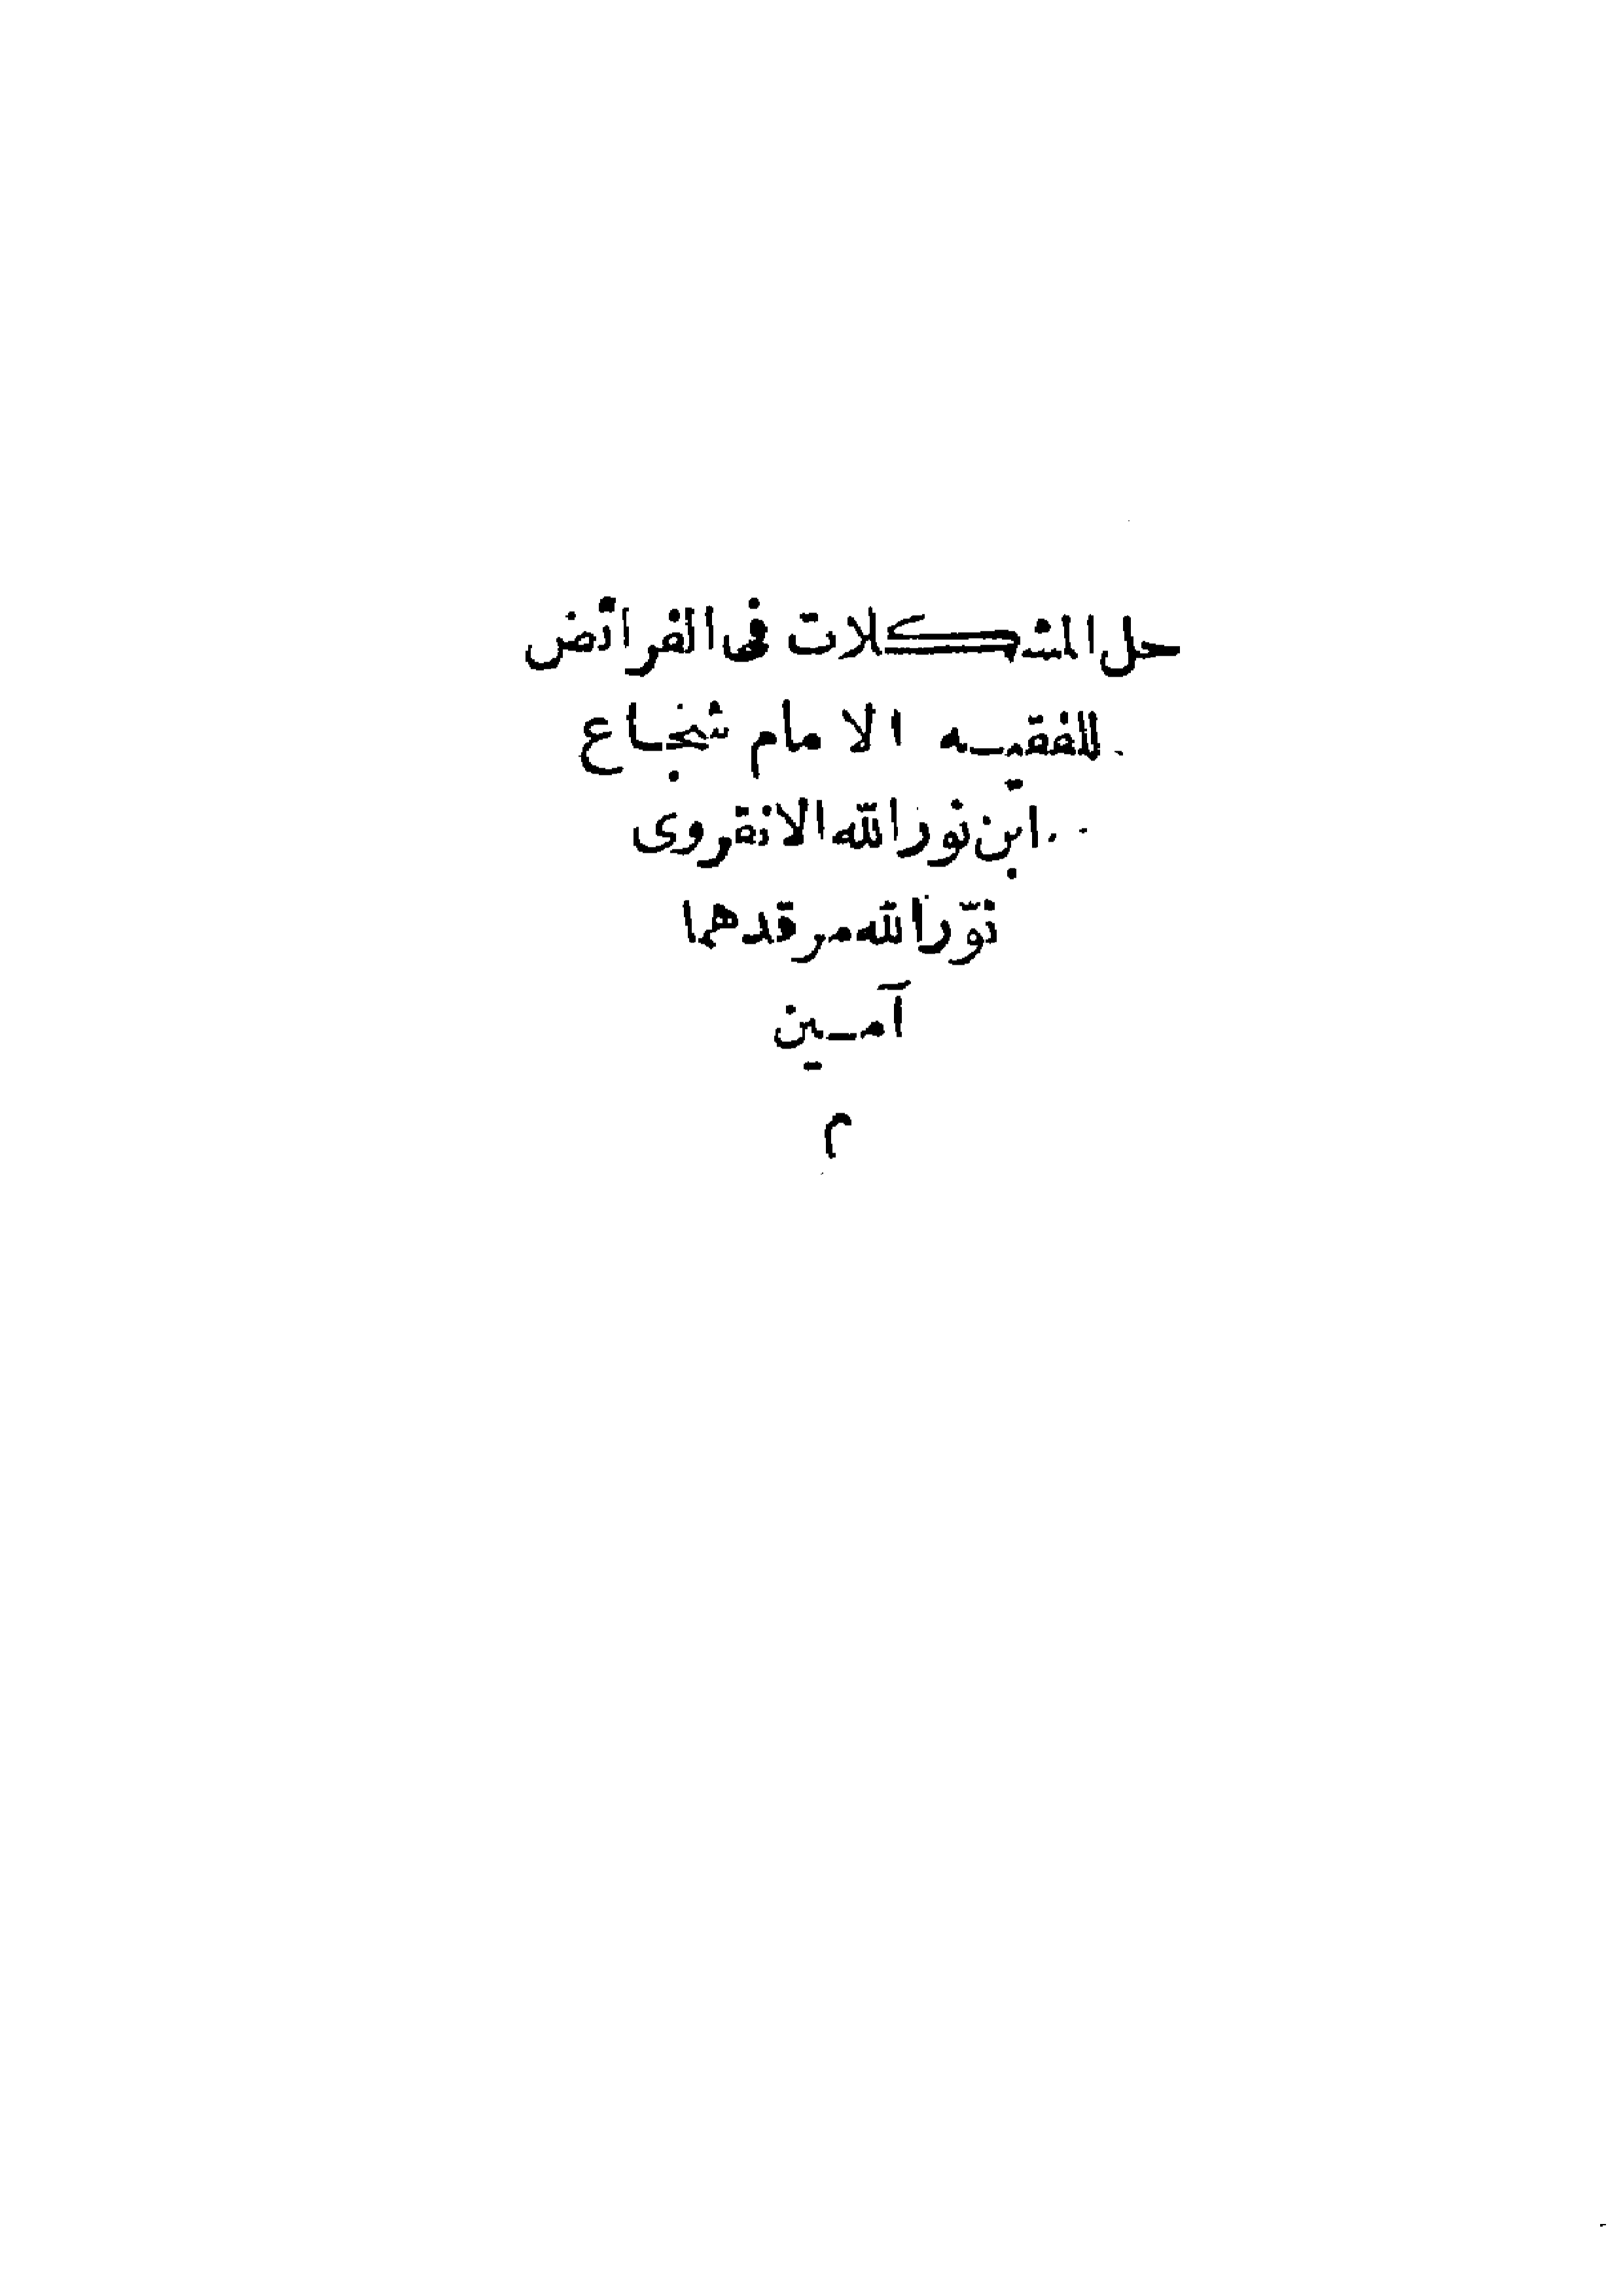 حل المشكلات فى الفرائض
للفقيه الامام شجاع
ابن نور الله الانقروى
نوّر الله مرقدهما
آمين
م